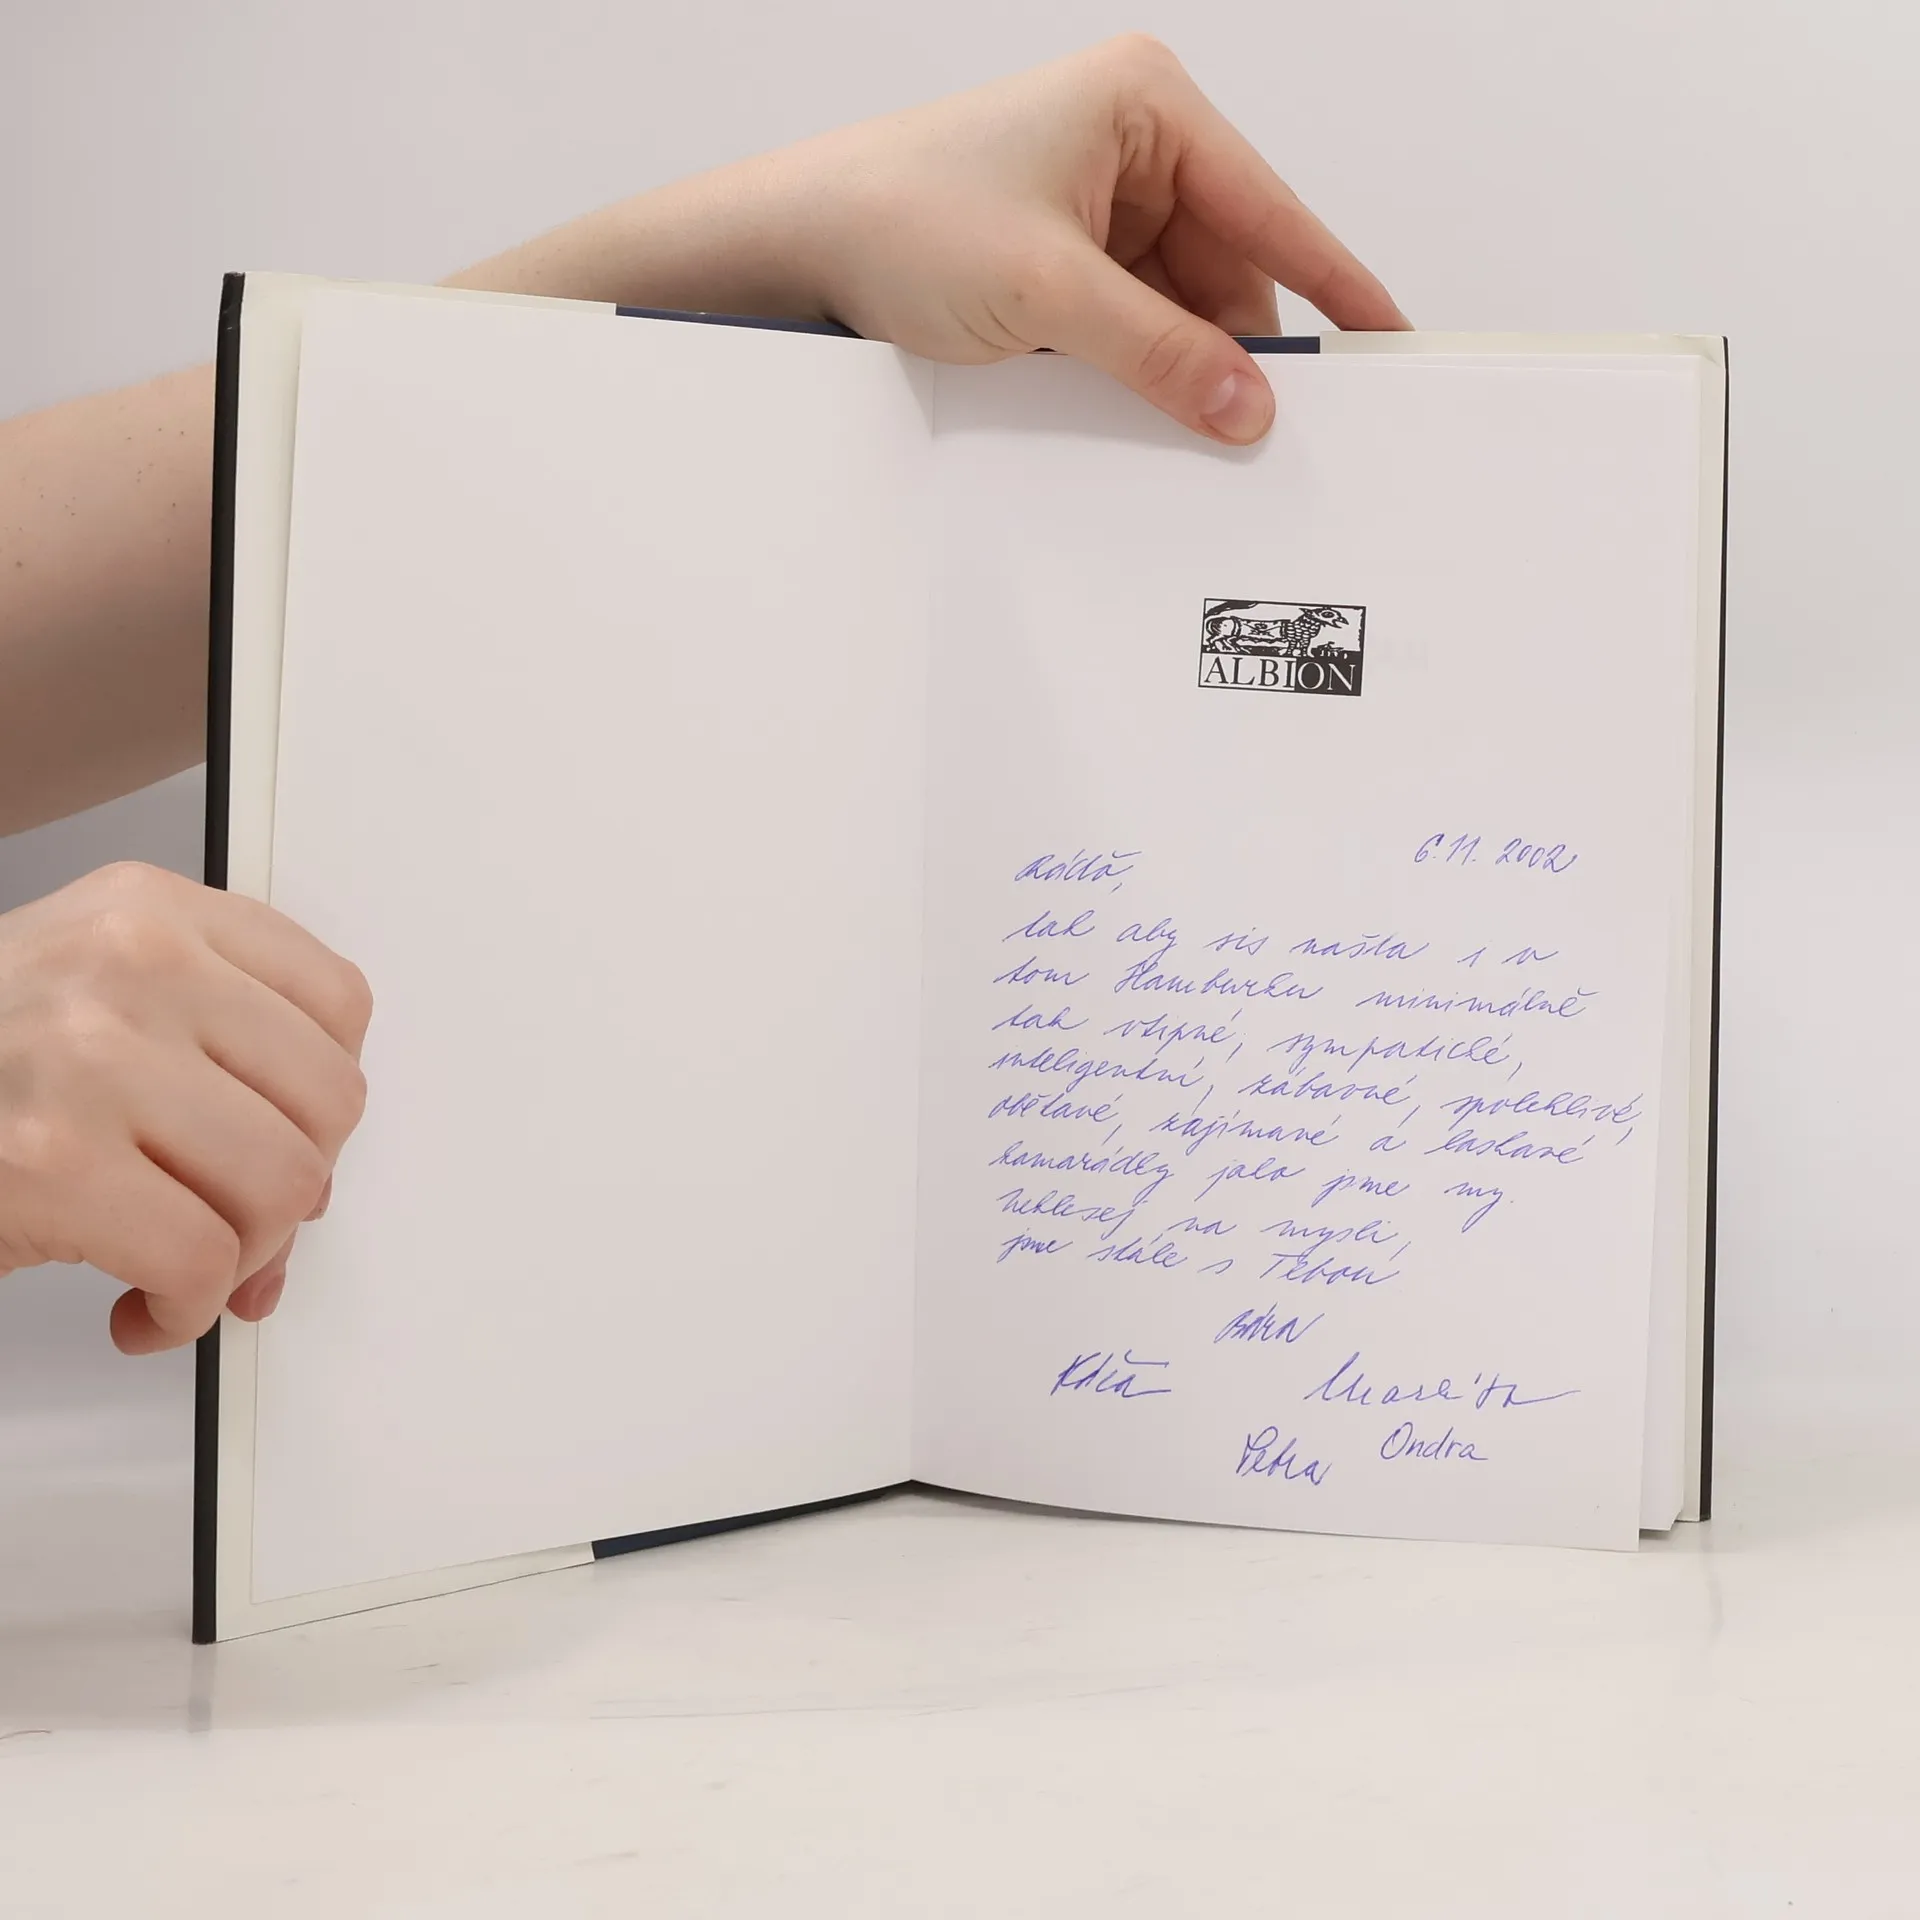 ALBION
6. 11. 2002
Ráďo,
tak aby sis našla i v
tom Hamburku minimálně
tak vtipné, sympatické,
inteligentní, zábavné, spolehlivé,
obětavé, zajímavé a laskavé
kamarádky jako jsme my.
Neklesej na mysli,
jsme stále s Tebou
Bára
Káča
Markéta
Petra
Ondra